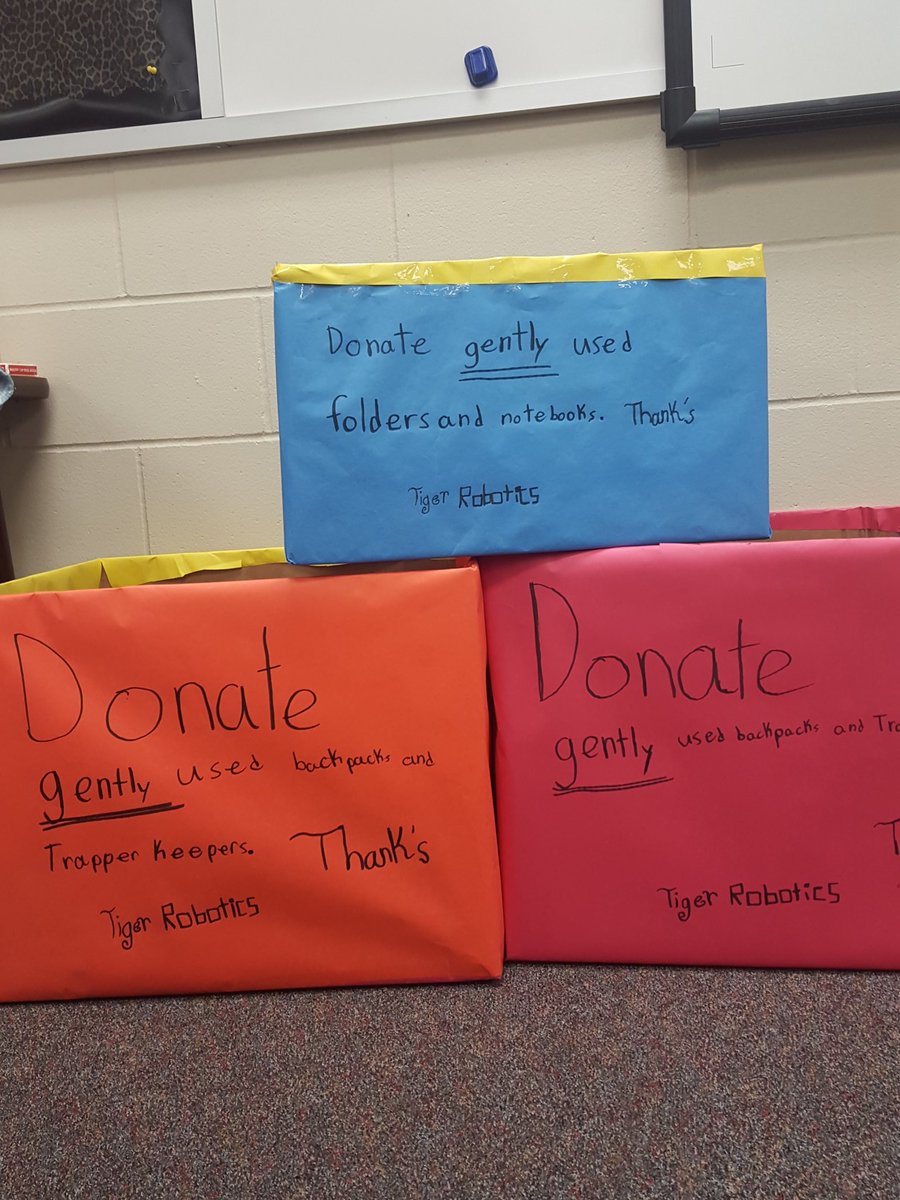 Donate gently used
folders and notebooks. Thank's
Tiger Robotics
Donate
gently used backpacks and
Trapper Keepers. Thank's
Tiger Robotics
Donate
gently used backpacks and
Tiger Robotics